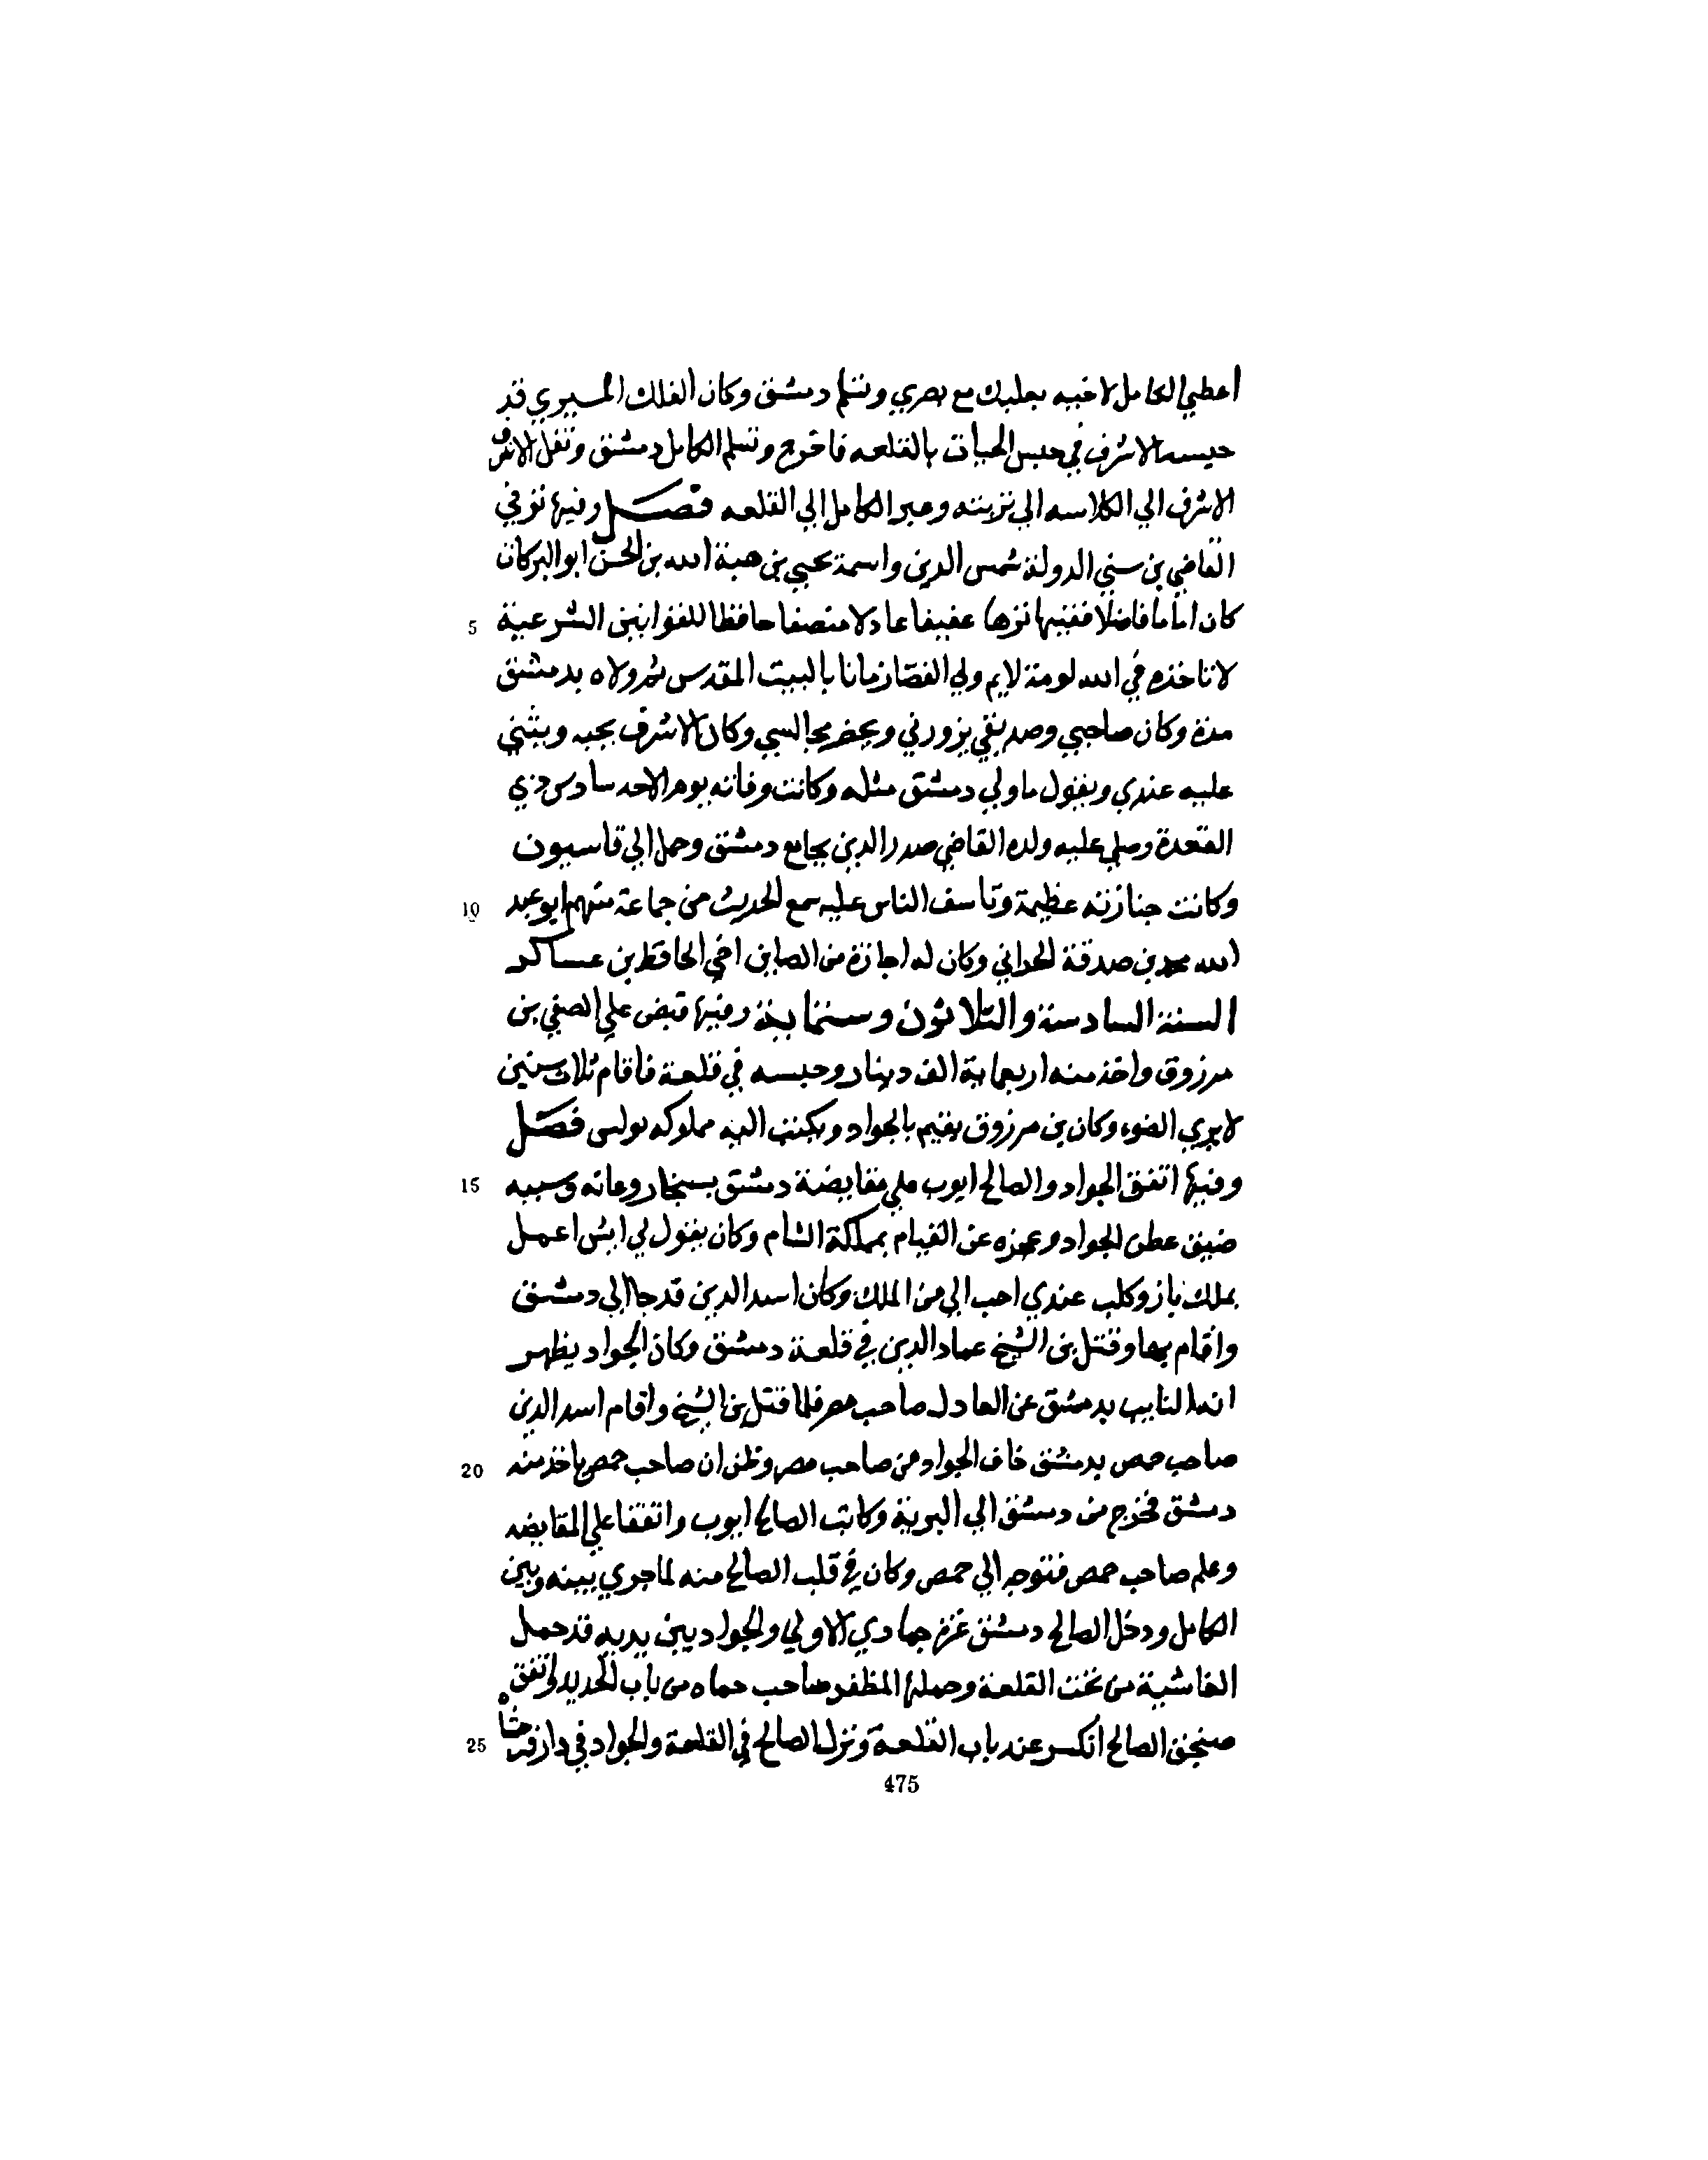 اعطي الكامل لاخيه بعلبك مع بصري وتسلم دمشق وكان الفلك المسيري قد
حبسه الاشرف في حبس الحيات بالقلعه فاخرج وتسلم الكامل دمشق ونقل الاشرف
الاشرف الي الكلاسه الي تربته وعبر الكامل الي القلعه فصل وفيها توفي
القاضي بن سني الدولة شمس الدين واسمة يحيي بن هبة الله بن الحسن ابو البركات
5 كان اماما فاضلا فقيها نزها عفيفا عادلا منصفا حافظا للقوانين الشرعية
لا تاخذه في الله لومة لايم ولي القضا زمانا بالبيت المقدس ثم ولاه بدمشق
مدة وكان صاحبي وصديقي يزورني ويحضر مجالسي وكان الاشرف يحبه ويثني
عليه عندي ويقول ما ولي دمشق مثله وكانت وفاته يوم الاحد سادس ذي
القعدة وصلي عليه ولده القاضي صدر الدين بجامع دمشق وحمل الي قاسيون
10 وكانت جنازته عظيمة وتاسف الناس عليه سمع الحديث من جماعة منهم ابو عبد
الله محمد بن صدقة الحراني وكان له اجازة من الصاين اخي الحافظ بن عساكر
السنة السادسة والثلاثون وستمايئة وفيها قبض علي الصفي بن
مرزوق واخذ منه اربعماية الف دينار وحبسه في قلعة فاقام ثلاث سنين
لا يري الضوء وكان بن مرزوق يقيم بالجواد ويكتب اليه مملوكه بولس فصل
15 وفيها اتفق الجواد والصالح ايوب علي مقايضة دمشق بسنجار وعانه وسببه
ضيق عطن الجواد وعجزه عن القيام بمملكة الشام وكان يقول لي ايش اعمل
بملك باز وكلب عندي احب الي من الملك وكان اسد الدين قد جا الي دمشق
واقام بها وقتل بن الشيخ عماد الدين في قلعة دمشق وكان الجواد يظهر
انه النايب بدمشق عن العادل صاحب مصر فلما قتل بن الشيخ واقام اسد الدين
20 صاحب حمص بدمشق خاف الجواد من صاحب مصر وظن ان صاحب حمص ياخذ منه
دمشق فخرج من دمشق الي البرية وكاتب الصالح ايوب واتفقا علي المقايضه
وعلم صاحب حمص فتوجه الي حمص وكان في قلب الصالح منه لما جري بينه وبين
الكامل ودخل الصالح دمشق غرة جمادي الاولي والجواد بين يديه قد حمل
الغاشية من تحت القلعة وحملها المظفر صاحب حماه من باب الحديد واتفق
25 سنجق الصالح انكسر عند باب القلعة ونزل الصالح في القلعة والجواد في دار فرخشاه
475